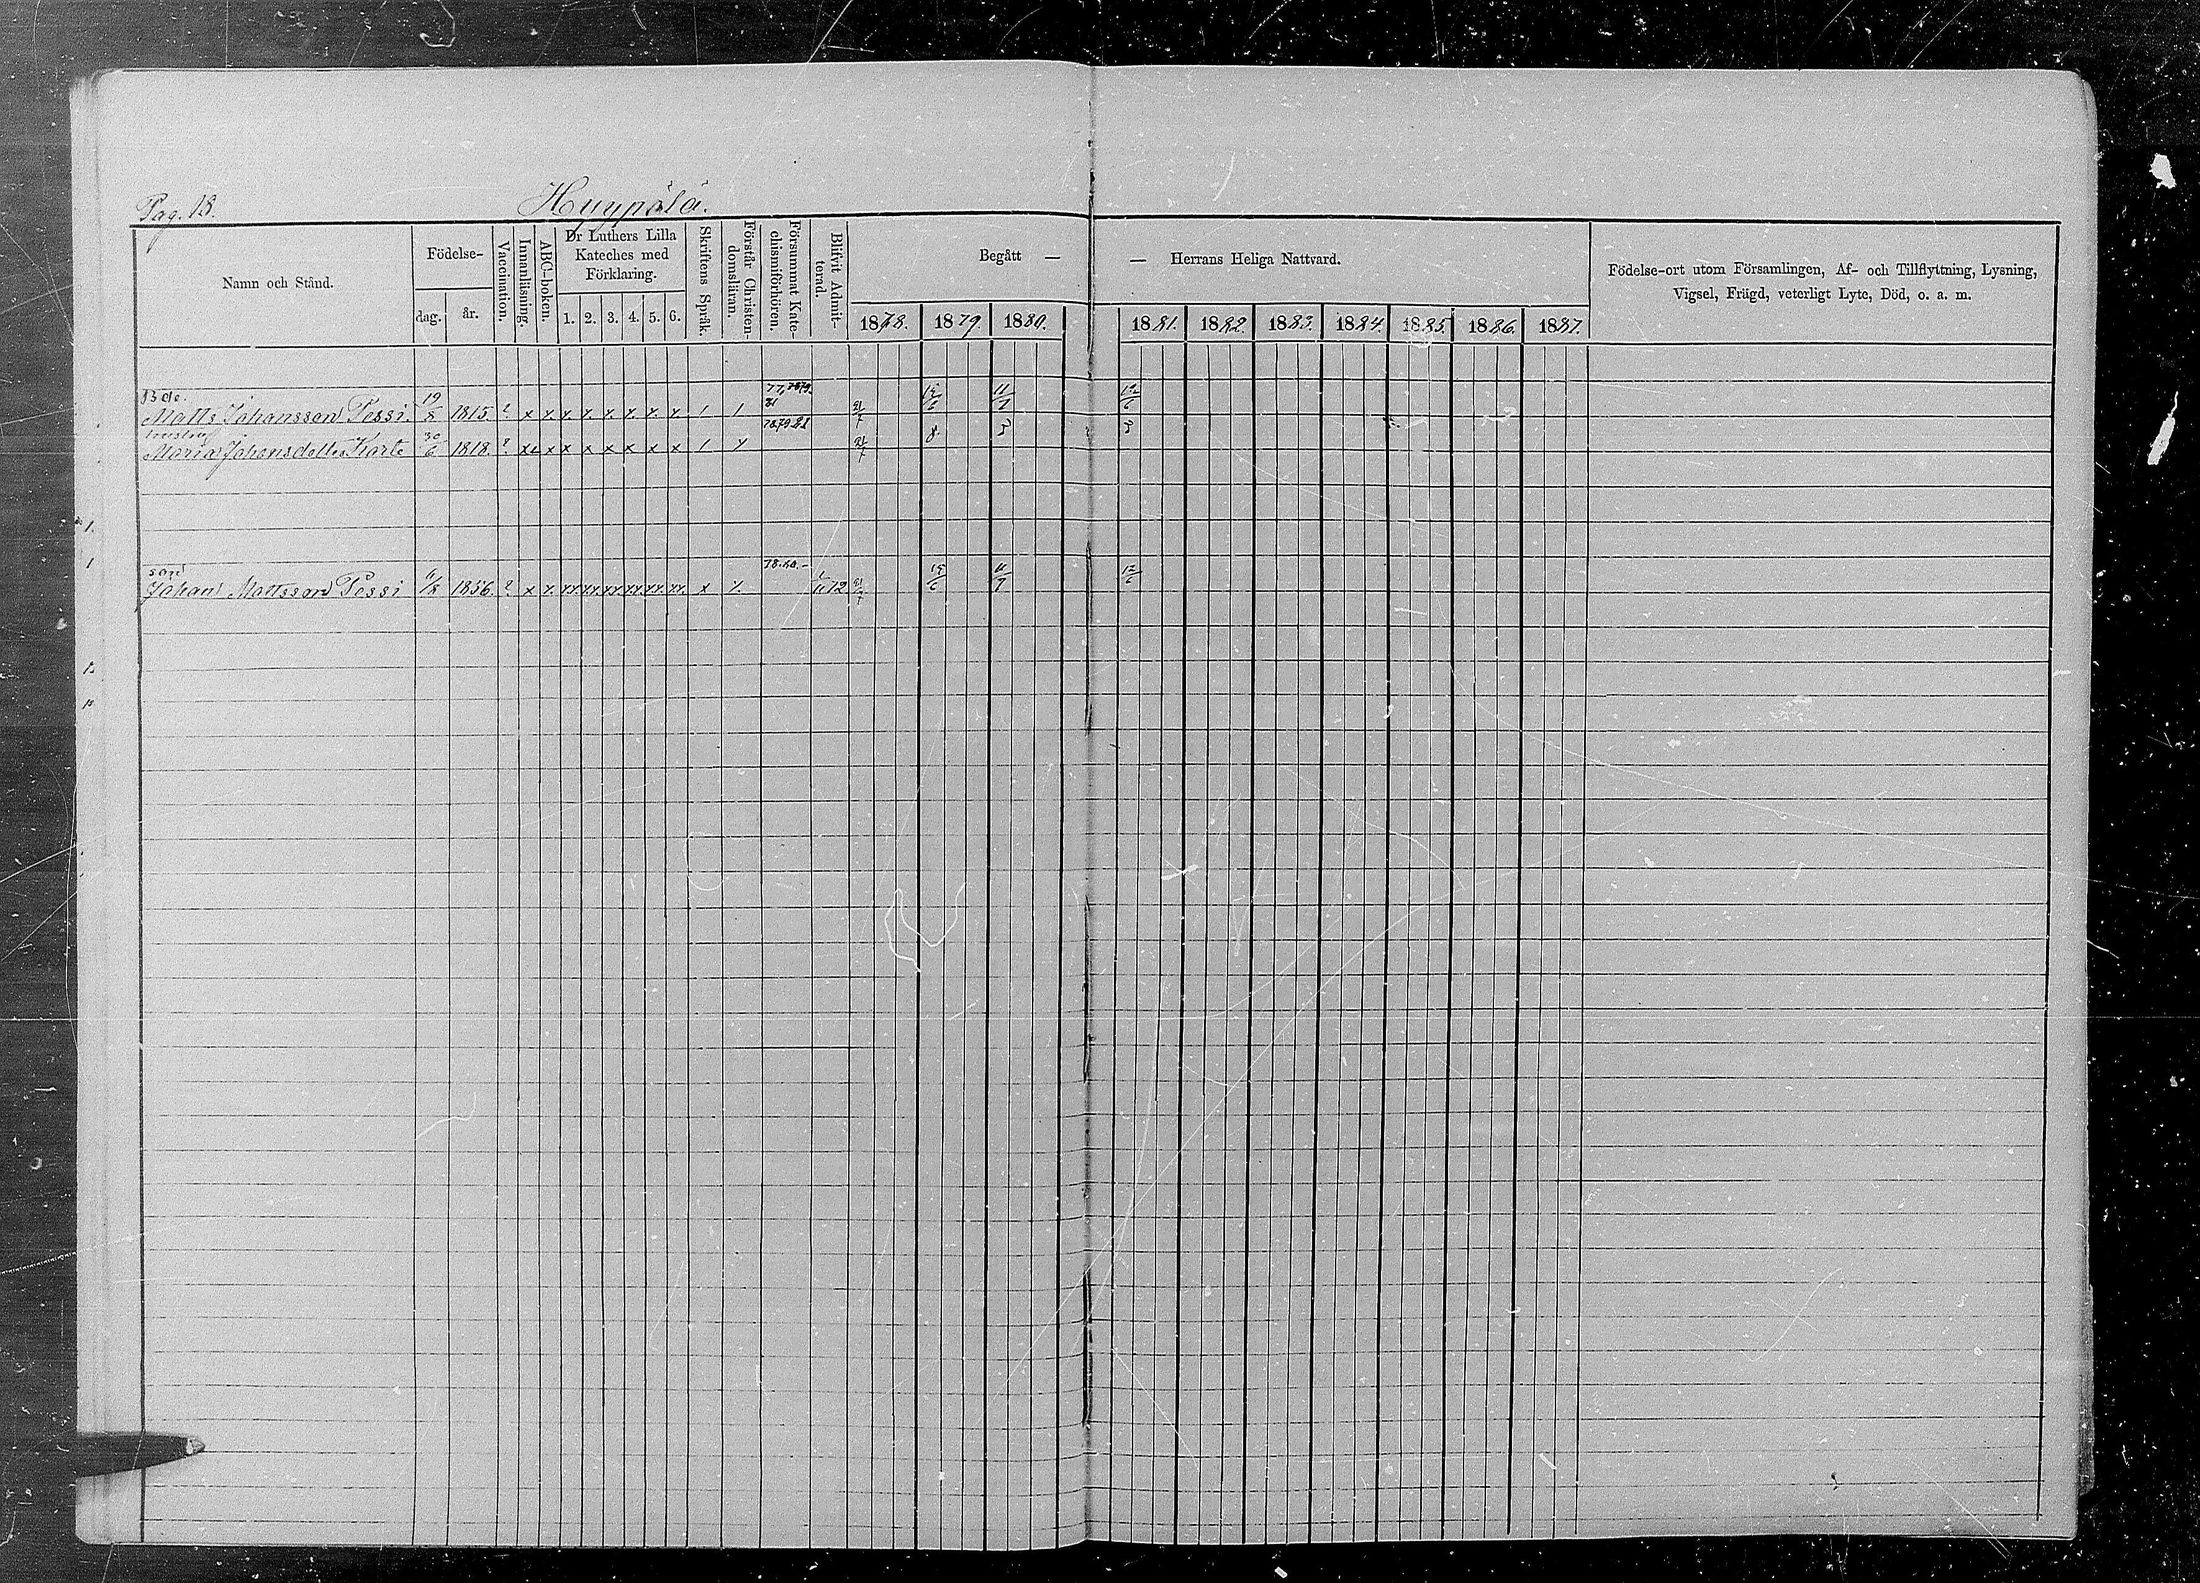 Pag. 13. Huypölä.
Namn och Stånd.
Födelse-
dag. år.
Vaccination.
Innanläsning.
ABC-boken.
Dr Luthers Lilla
Kateches med
Förklaring.
1. 2. 3. 4. 5. 6.
Skriftens Språk.
Förstår Christen-
domsläran.
Försummat Kate-
chismiförhören.
Blifvit Admit-
terad.
Begått — — Herrans Heliga Nattvard.
1878. 1879 1880. 1881. 1882. 1883. 1884. 1885. 1886. 1887.
Födelse-ort utom Församlingen, Af- och Tillflyttning, Lysning,
Vigsel, Frägd, veterligt Lyte, Död, o. a. m.
Bde.
Matts Johansson Pessi. 19/8 1815. ? x x. x. x. x. x. x. x.
hustru
Maria Johansdotter Karte 30/6 1818. ? x x x x x x x
78.79.81
son
Johan Mattsson Pessi 1856. ? x x. xx. xx. xx. xx. xx. xx. x